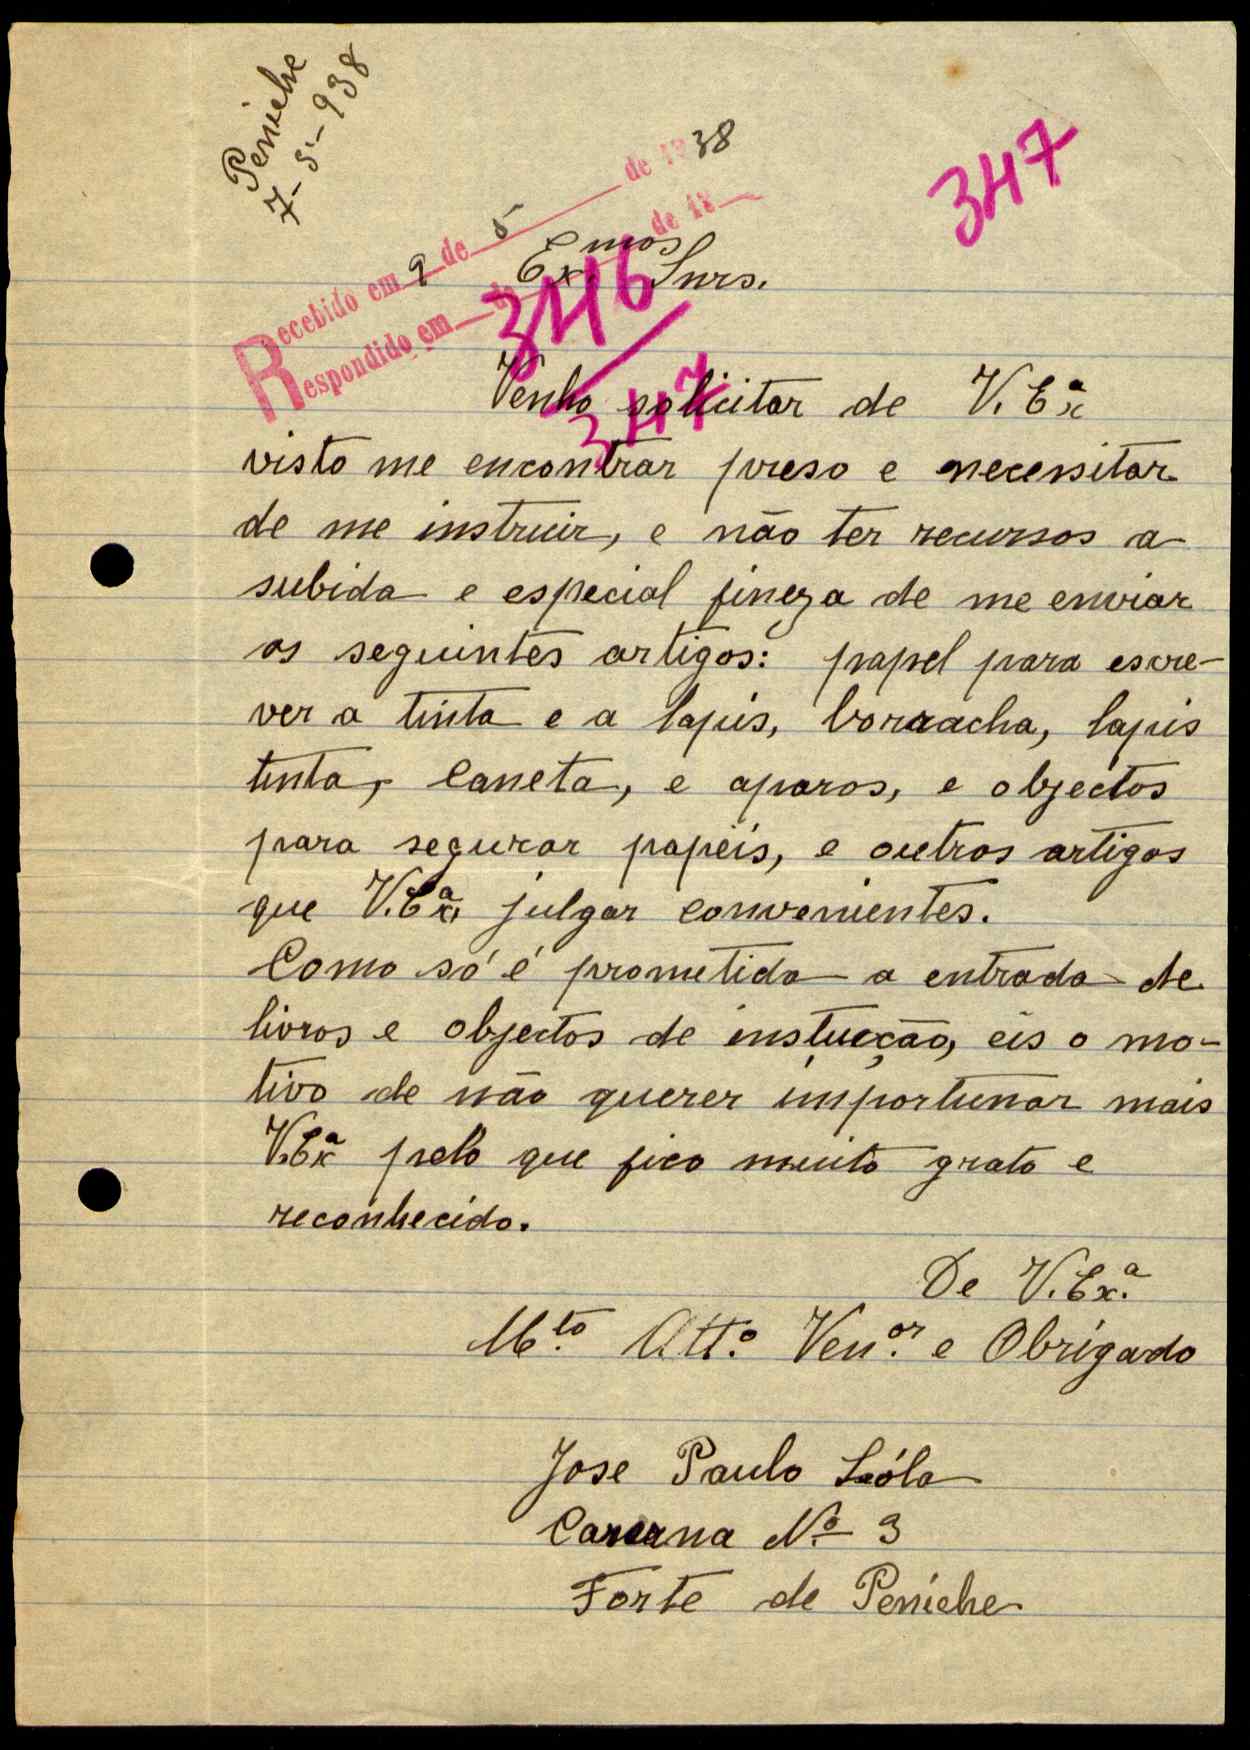 Peniche
7-5-938
347
Recebido em 9 de 5 de 1938
Respondido em de de 18
Ex.mos Snrs.
346
347
Venho solicitar de V. Exª
visto me encontrar preso e necessitar
de me instruir, e não ter recursos a
subida e especial fineza de me enviar
os seguintes artigos: papel para escre-
ver a tinta e a lapis, borracha, lapis
tinta, caneta, e aparos, e objectos
para segurar papeis, e outros artigos
que V.Exª, julgar convenientes.
Como só é prometida a entrada de
livros e objectos de instucção, eis o mo-
tivo de não querer importunar mais
V.Exª pelo que fico muito grato e
reconhecido.
De V. Ex.ª
M.to Att.º Ven.or e Obrigado
Jose Paulo
Caserna Nº 3
Forte de Peniche